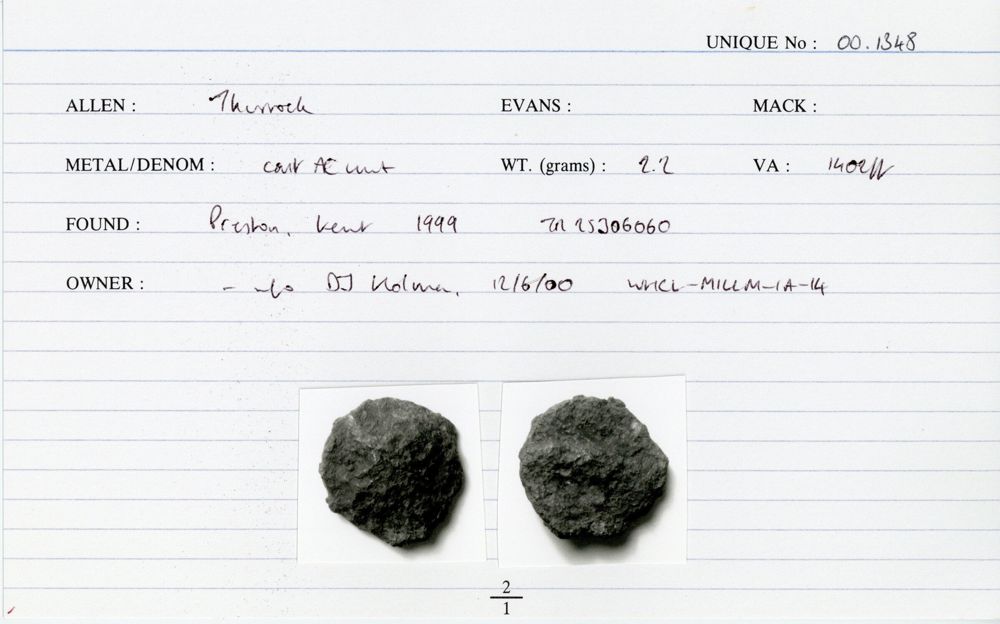 UNIQUE No : 00.1348
ALLEN : Thurrock EVANS : MACK :
METAL/DENOM : cast AE unit WT. (grams) : 2.2 VA : 1402ff
FOUND : Preston, Kent 1999 TR 25306060
OWNER : - info DJ Holman, 12/6/00 WHCL-MILLM-IA-14
2
1